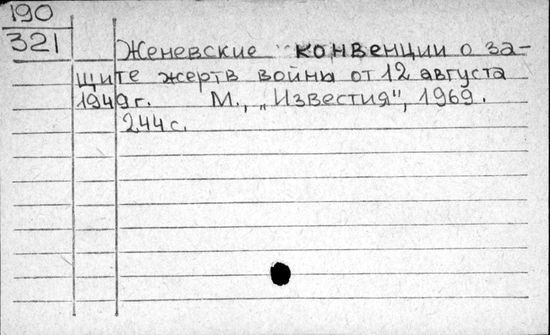 190
321
Женевские конвенции о за-
щите жертв войны от 12 августа
1949г. М., „Известия", 1969.
244с.